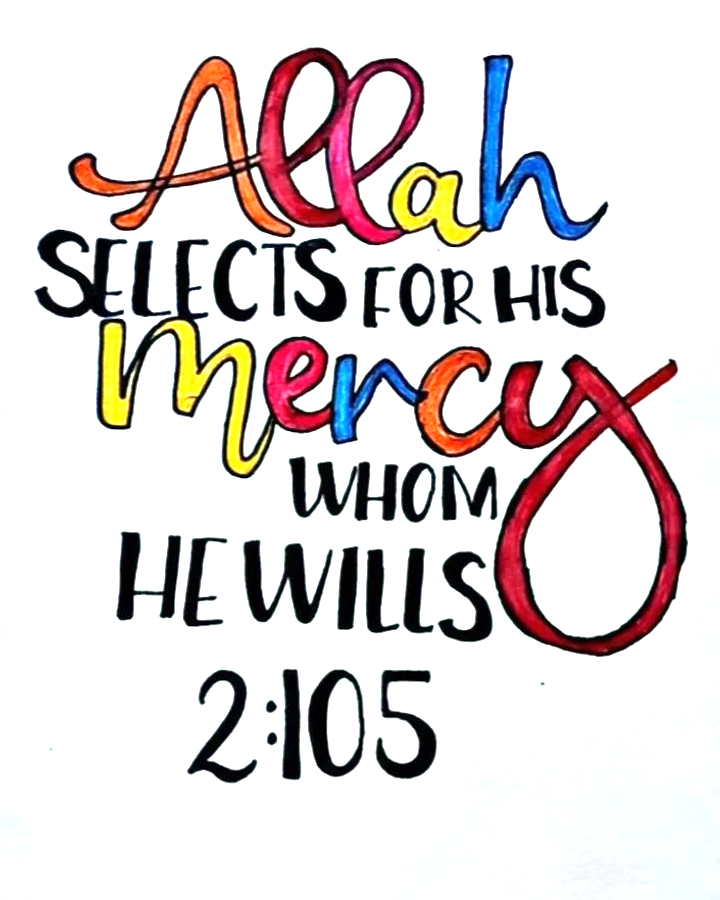 Allah
SELECTS FOR HIS
mercy
WHOM
HE WILLS
2:105